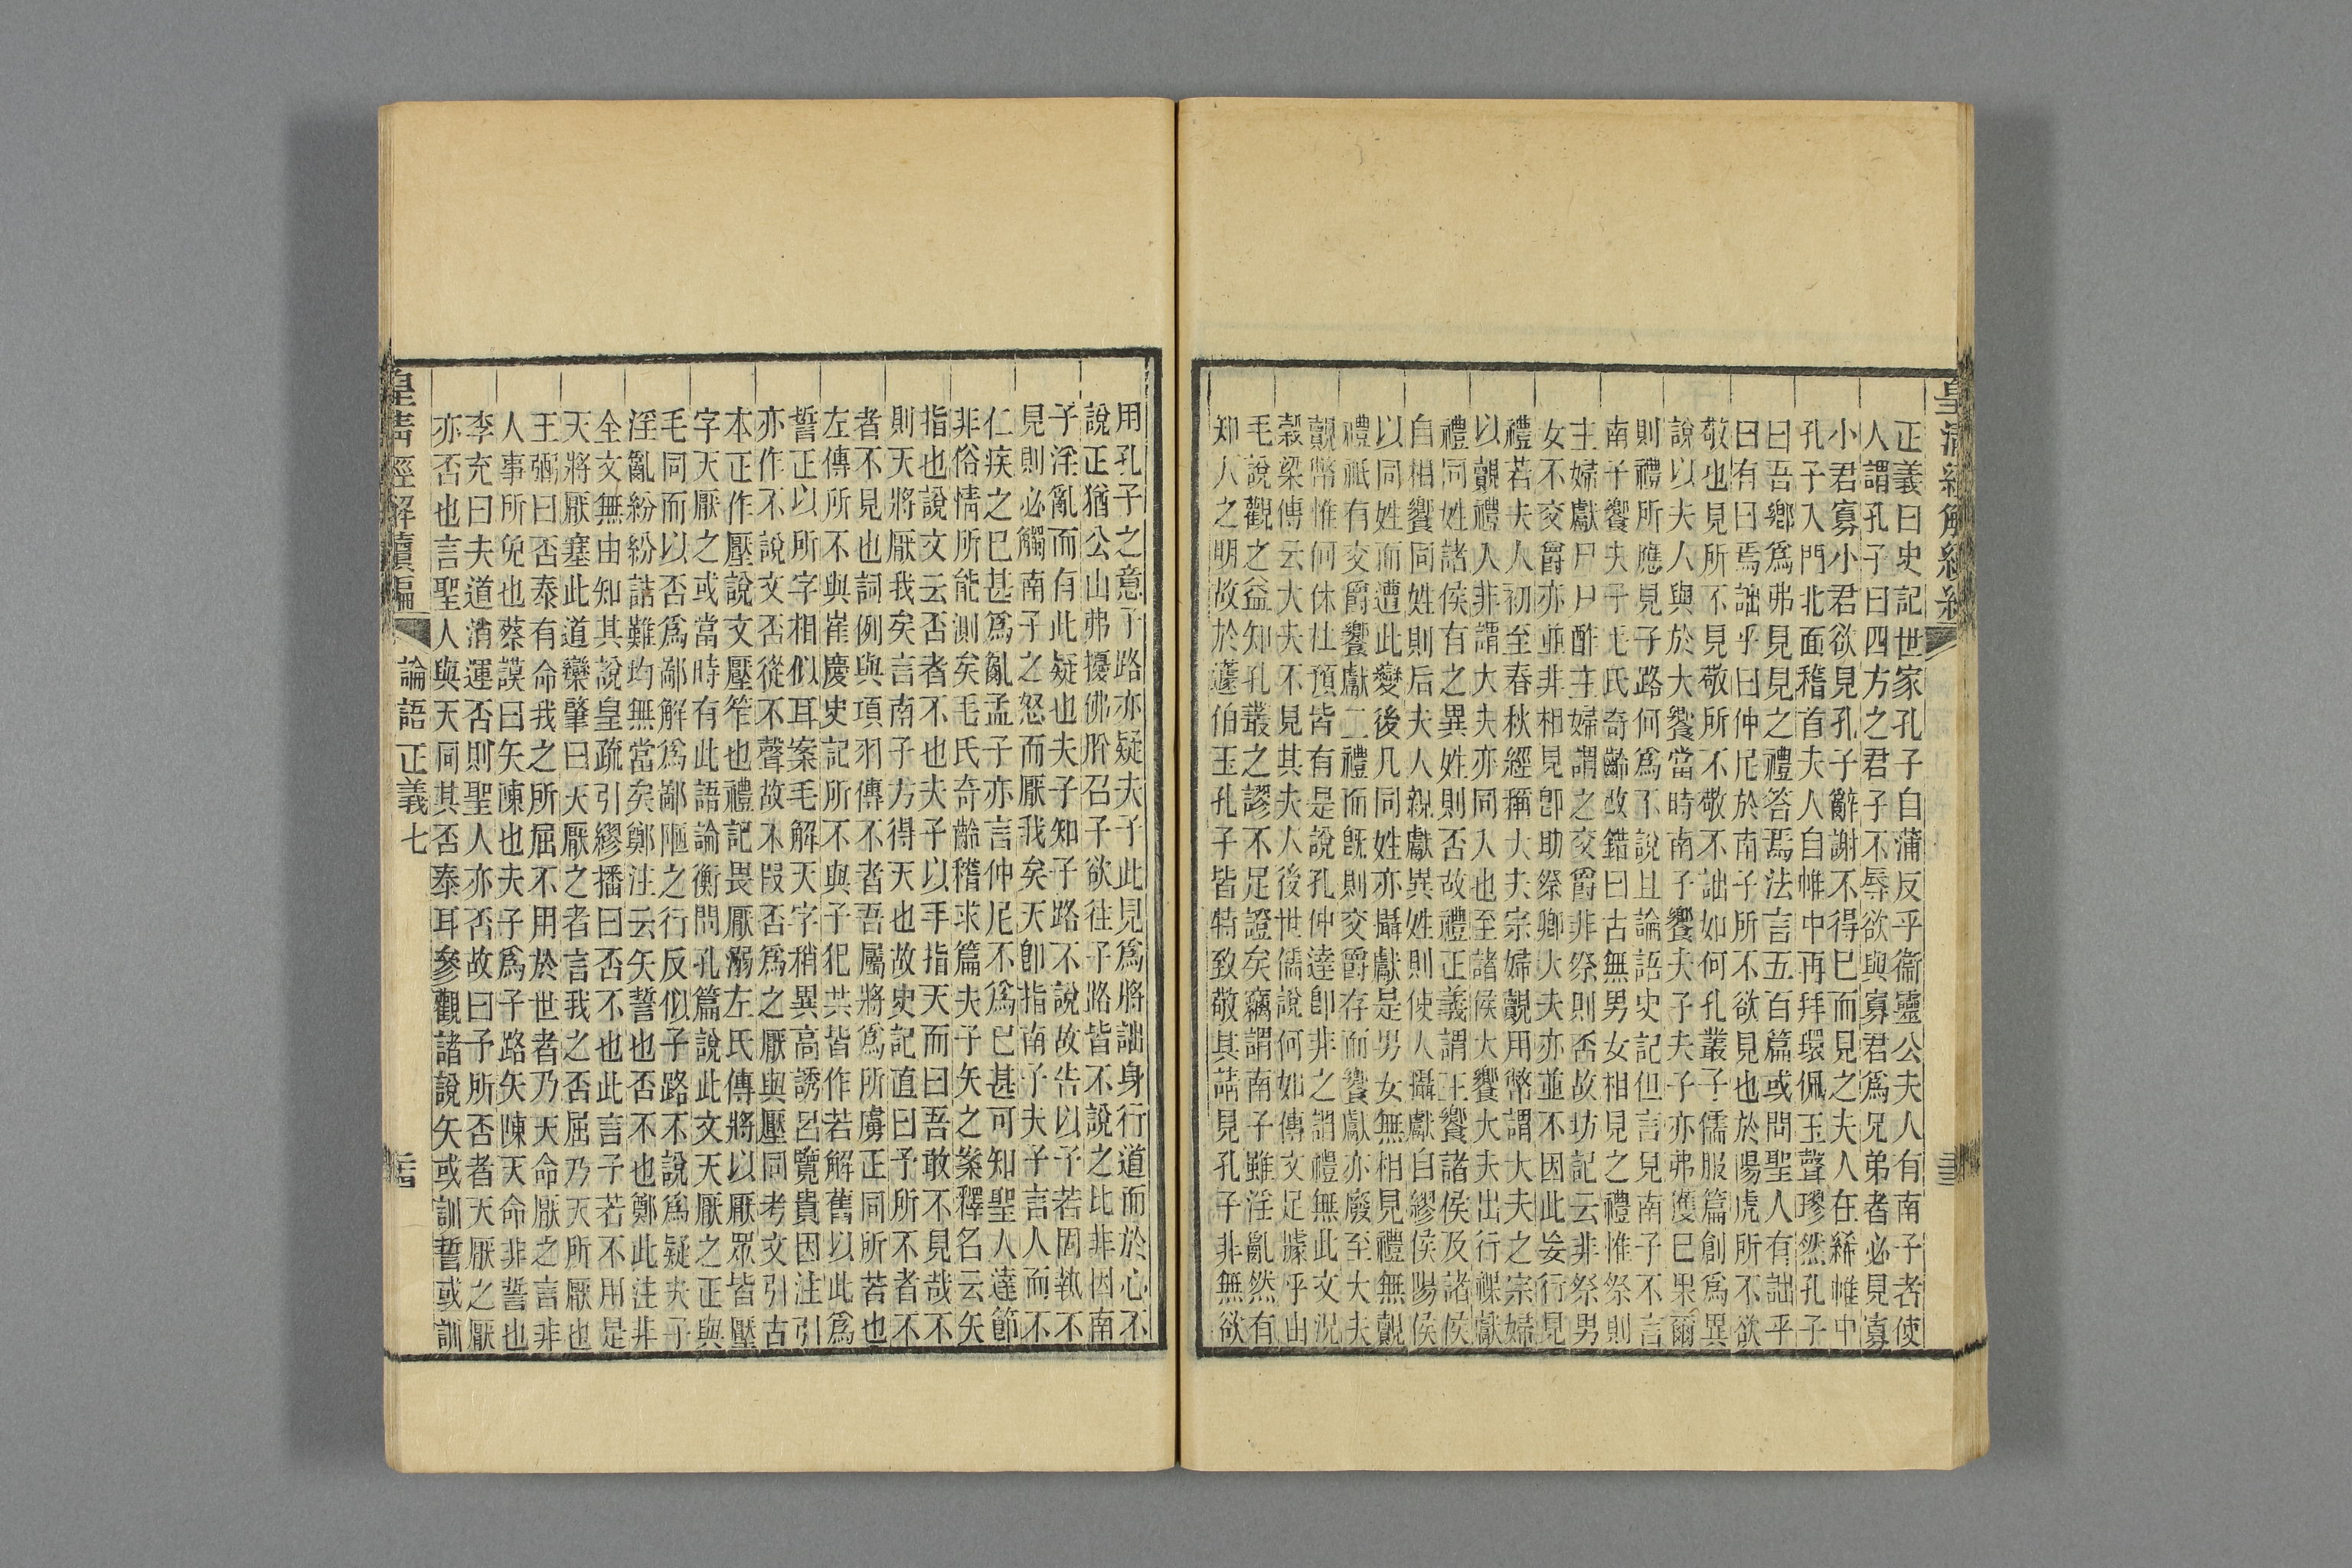 皇清經解續編
正義曰史記世家孔子自蒲反乎衞靈公夫人有南子者使
人謂孔子曰四方之君子不辱欲與寡君爲兄弟者必見寡
小君寡小君欲見孔子辭謝不得已而見之夫人在絺帷中
孔子入門北面稽首夫人自帷中再拜環佩玉聲璆然孔子
曰吾鄉爲弗見見之禮答焉法言五百篇或問聖人有詘乎
曰有曰焉詘乎曰仲尼於南子所不欲見也於陽虎所不欲
敬也見所不見敬所不敬不詘如何孔叢子儒服篇創爲異
說以夫人與於大饗當時南子饗夫子夫子亦弗獲已果爾
則禮所應見子路何爲不說且論語史記但言見南子不言
南子饗夫子毛氏奇齡改錯曰古無男女相見之禮惟祭則
主婦獻尸尸酢主婦謂之交爵非祭則否故坊記云非祭男
女不交爵亦並非相見卽助祭卿大夫亦並不因此妄行見
禮若夫人初至春秋經稱大夫宗婦覿用幣謂大夫之宗婦
以覿禮人非謂大夫亦同入也至諸侯大饗大夫出行祼獻
禮同姓諸侯有之異姓則否故禮正義謂王饗諸侯及諸侯
自相饗同姓則后夫人親獻異姓則使人攝獻自繆侯陽侯
以同姓而遭此變後凡同姓亦攝獻是男女無相見禮無覿
禮祇有交爵饗獻二禮而旣則交爵存而饗獻亦廢至大夫
覿幣惟何休杜預皆有是說孔仲達卽非之謂禮無此文況
榖梁傳云大夫不見其夫人後世儒說何如傳文足據乎由
毛說觀之益知孔叢之謬不足證矣竊謂南子雖淫亂然有
知人之明故於蘧伯玉孔子皆特致敬其請見孔子非無欲
用孔子之意子路亦疑夫子此見爲將詘身行道而於心不
說正猶公山弗擾佛肸召子欲往子路皆不說之比非因南
子淫亂而有此疑也夫子知子路不說故告以予若固執不
見則必觸南子之怒而厭我矣天卽指南子夫子言人而不
仁疾之已甚爲亂孟子亦言仲尼不爲已甚可知聖人達節
非俗情所能測矣毛氏奇齡稽求篇夫子矢之案釋名云矢
指也說文云否者不也夫子以手指天而曰吾敢不見哉不
則天將厭我矣言南子方得天也故史記直曰予所不者不
者不見也詞例與項羽傳不者吾屬將爲所虜正同所若也
左傳所不與崔慶史記所不與子犯共皆作若解舊以此爲
誓正以所字相似耳案毛解天字稍異高誘呂覽貴因注引
亦作不說文否從不聲故不叚否爲之厭與壓同考文引古
本正作壓說文壓笮也禮記畏厭溺左氏傳將以厭眾皆壓
字天厭之或當時有此語論衡問孔篇說此文天厭之正與
毛同而以否爲鄙解爲鄙陋之行反似子路不說爲疑夫子
淫亂紛紛詰難均無當矣鄭注云矢誓也否不也鄭此注非
全文無由知其說皇疏引繆播曰否不也此言子若不用是
天將厭塞此道欒肇曰天厭之者言我之否屈乃天所厭也
王弼曰否泰有命我之所屈不用於世者乃天命厭之言非
人事所免也蔡謨曰矢陳也夫子爲子路矢陳天命非誓也
李充曰夫道消運否則聖人亦否故曰予所否者天厭之厭
亦否也言聖人與天同其否泰耳參觀諸說矢或訓誓或訓
皇清經解續編 論語正義七